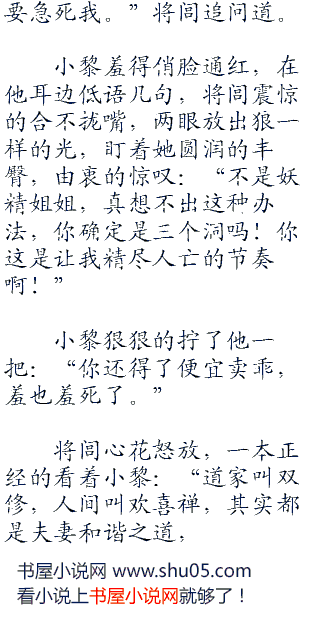 要急死我。”将闾追问道。
小黎羞得俏脸通红，在
他耳边低语几句，将闾震惊
的合不拢嘴，两眼放出狼一
样的光，盯着她圆润的丰
臀，由衷的惊叹：“不是妖
精姐姐，真想不出这种办
法，你确定是三个洞吗！你
这是让我精尽人亡的节奏
啊！”
小黎狠狠的拧了他一
把：“你还得了便宜卖乖，
羞也羞死了。”
将闾心花怒放，一本正
经的看着小黎：“道家叫双
修，人间叫欢喜禅，其实都
是夫妻和谐之道，
书屋小说网 www.shu05.com
看小说上书屋小说网就够了！